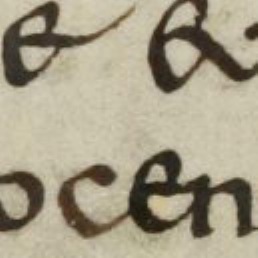 e &
ocen